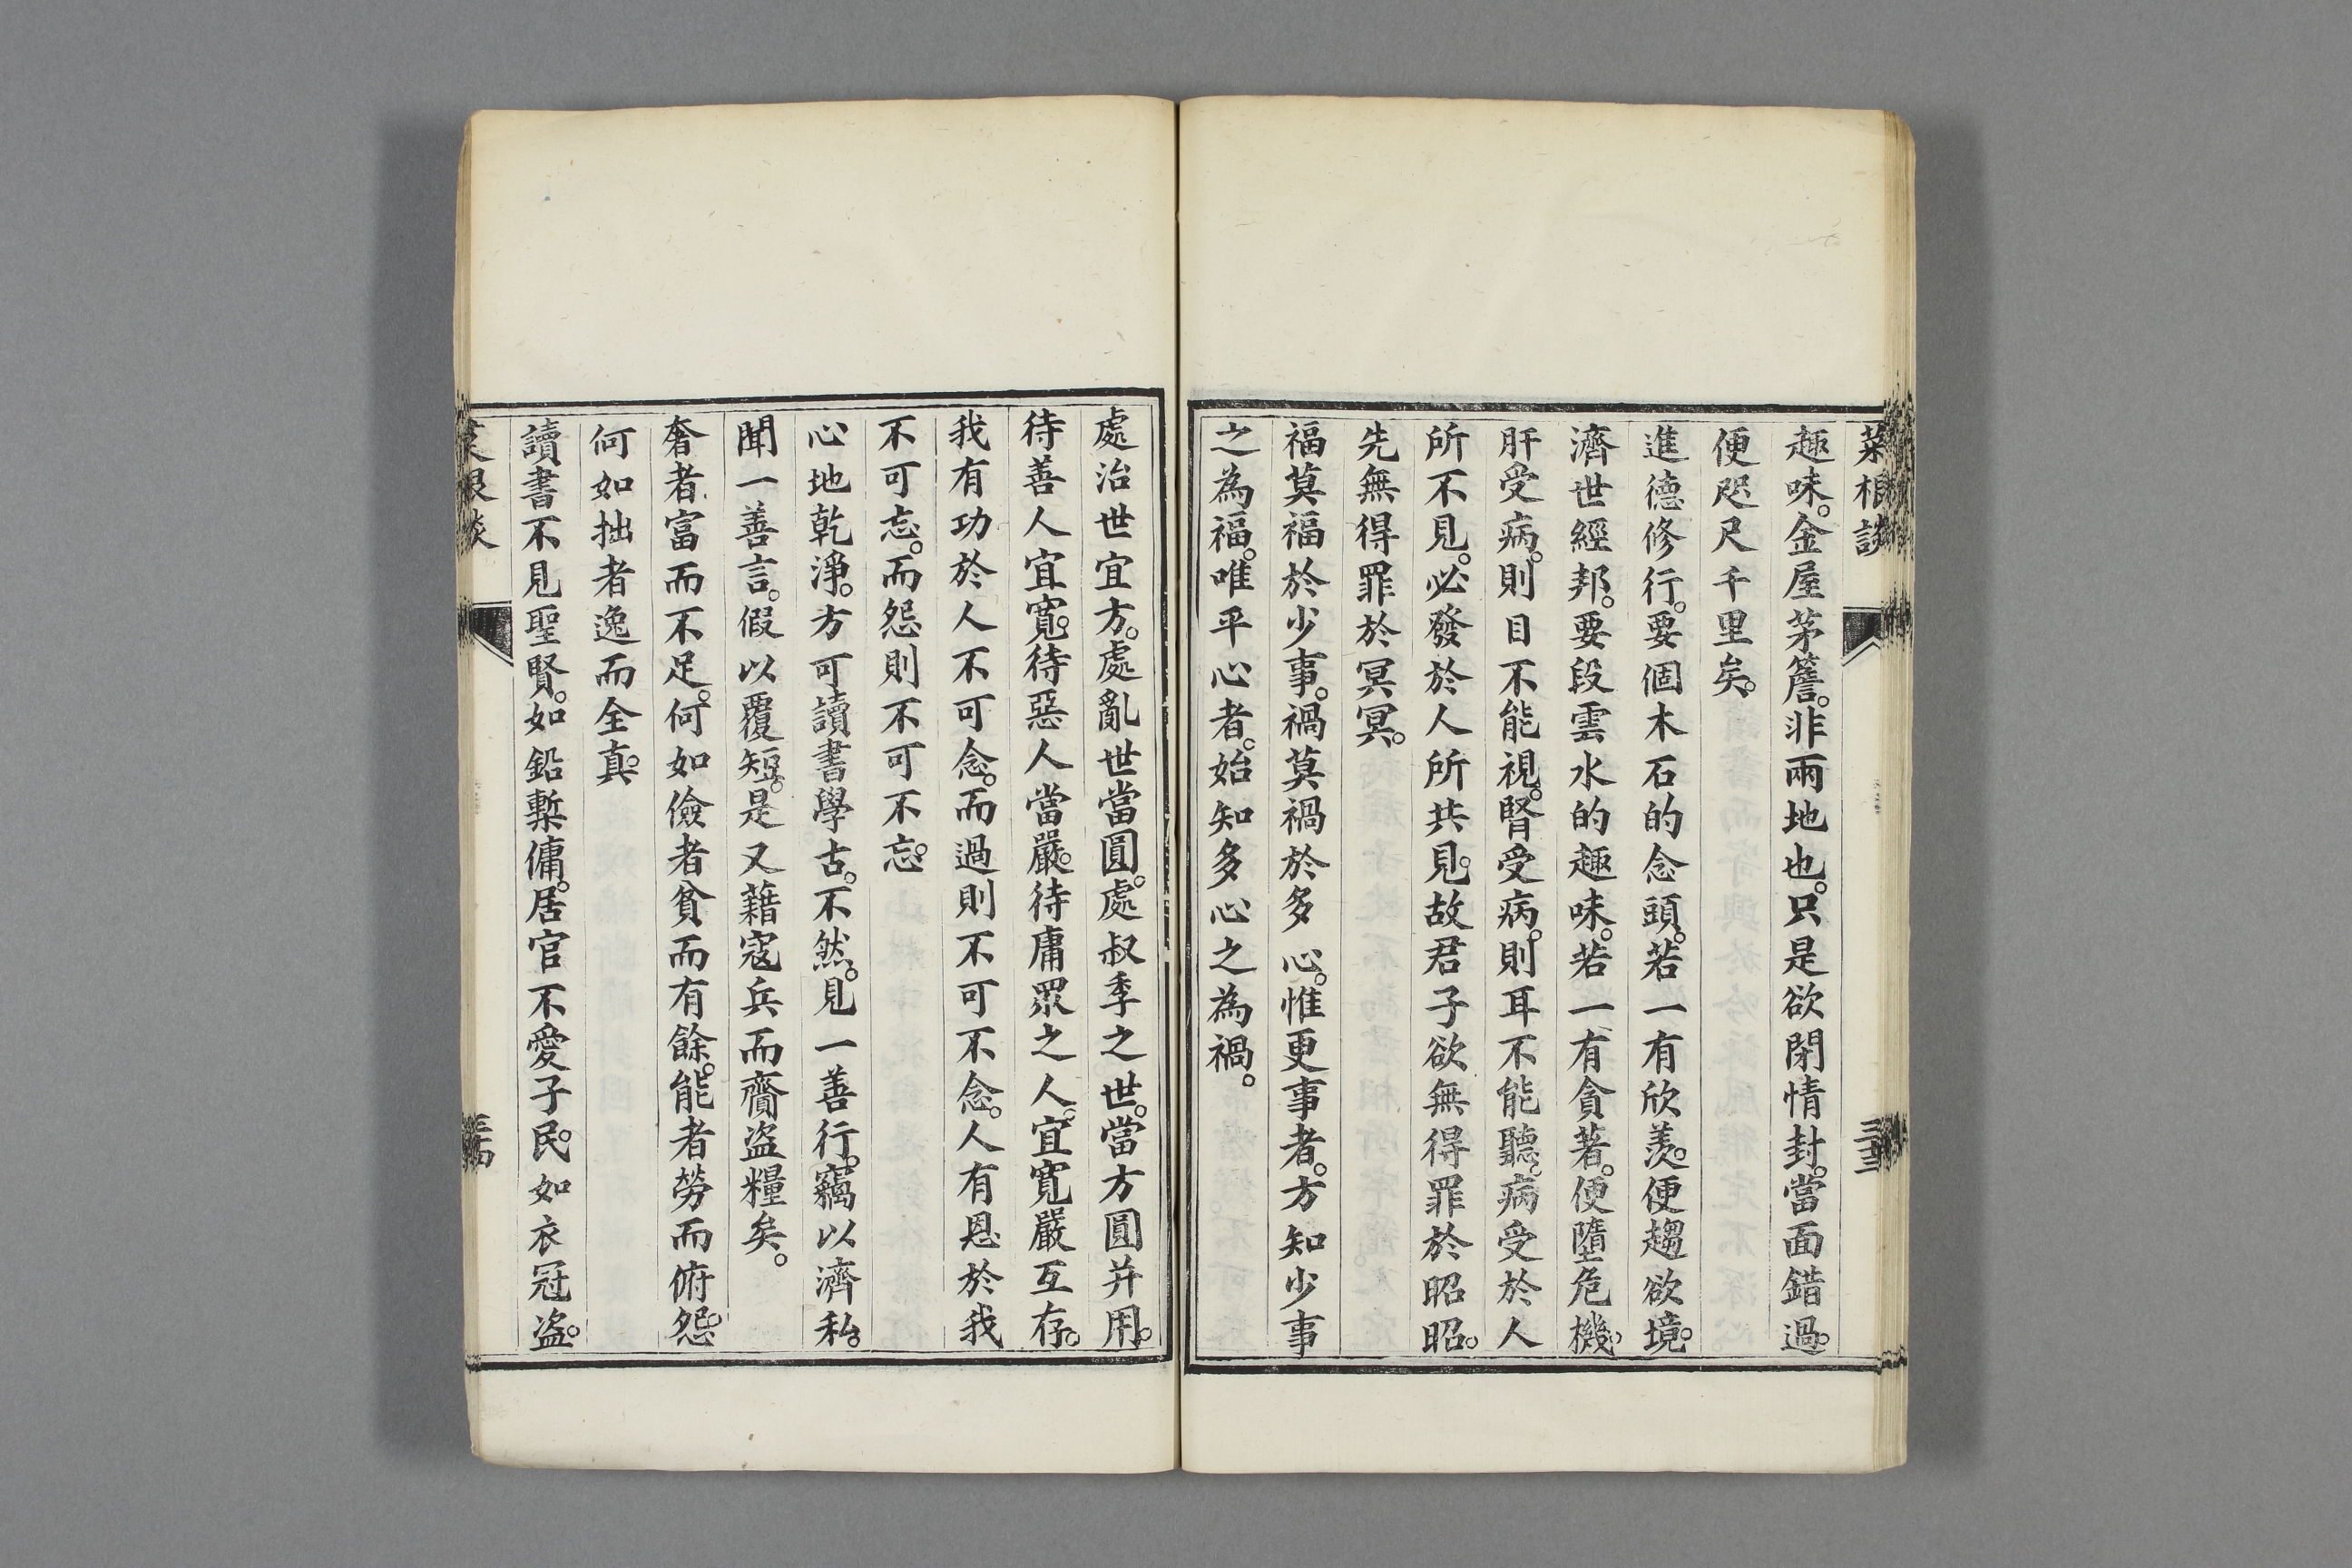 菜根談
三十三
趣味。金屋茅簷。非兩地也。只是欲閉情封。當面錯過。
便咫尺千里矣。
進德修行。要個木石的念頭。若一有欣羨。便趨欲境。
濟世經邦。要段雲水的趣味。若一有貪著。便墮危機。
肝受病。則目不能視。腎受病。則耳不能聽。病受於人
所不見。必發於人所共見。故君子欲無得罪於昭昭。
先無得罪於冥冥。
福莫福於少事。禍莫禍於多心。惟更事者。方知少事
之為福。唯平心者。始知多心之為禍。
處治世宜方。處亂世當圓。處叔季之世。當方圓并用。
待善人宜寬。待惡人當嚴。待庸眾之人。宜寬嚴互存。
我有功於人不可念。而過則不可不念。人有恩於我
不可忘。而怨則不可不忘。
心地乾淨。方可讀書學古。不然。見一善行。竊以濟私。
聞一善言。假以覆短。是又藉寇兵而齎盜糧矣。
奢者富而不足。何如儉者貧而有餘。能者勞而俯怨。
何如拙者逸而全真。
讀書不見聖賢。如鉛槧傭。居官不愛子民。如衣冠盜。
菜根談
三十四